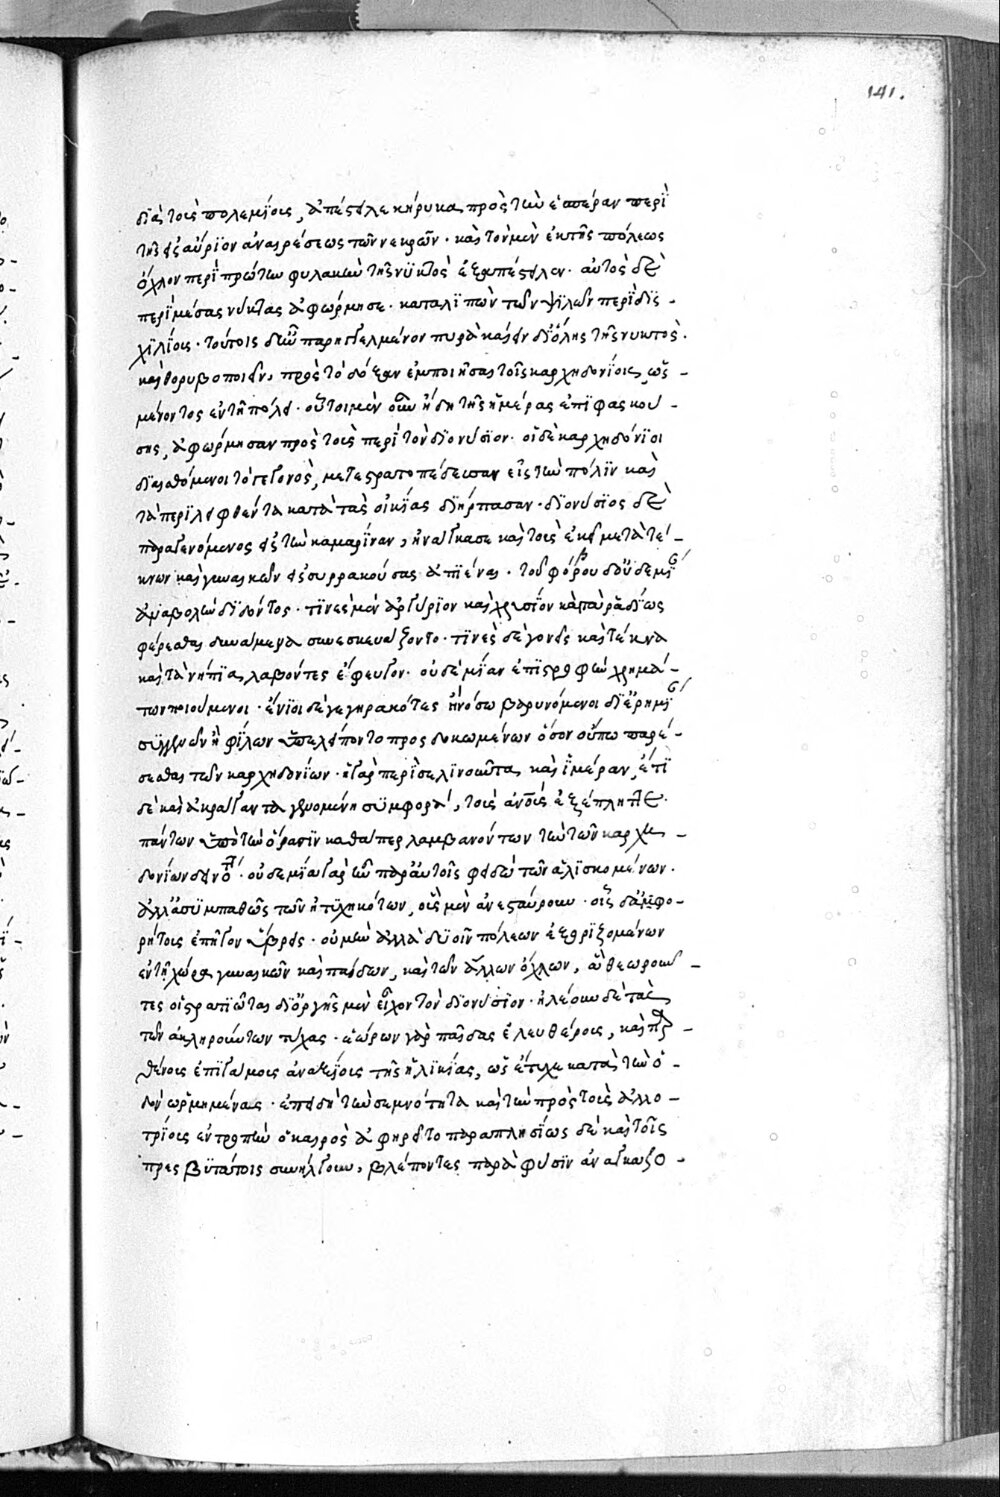 141.
διὰ τοῖς πολεμίοις, ἀπέστειλε κήρυκα πρὸς τὴν ἑσπέραν περὶ
τῆς εἰς αὔριον ἀναιρέσεως τῶν νεκρῶν· καὶ τὸν μὲν ἐκ τῆς πόλεως
ὄχλον περὶ πρώτην φυλακὴν τῆς νυκτὸς ἐξαπέστειλεν· αὐτὸς δὲ
περὶ μέσας νύκτας ἀφώρμησε· καταλιπὼν τῶν ψιλῶν περὶ δισ-
χιλίοις· τούτοις δ' ἦν παρηγγελμένον πυρὰ καίειν δι' ὅλης τῆς νυκτὸς·
καὶ θορυβοποιεῖν, πρὸς τὸ δόξαν ἐμποιῆσαι τοῖς καρχηδονίοις, ὡς
μένοντος ἐν τῇ πόλει· οὗτοι μὲν οὖν ἤδη τῆς ἡμέρας ἐπιφασκού-
σης, ἀφώρμησαν πρὸς τοὺς περὶ τὸν διονύσιον· οἱ δὲ καρχηδόνιοι
διαισθόμενοι τὸ γεγονὸς, μετεστρατοπέδευσαν εἰς τὴν πόλιν καὶ
τὰ περιλειφθέντα κατὰ τὰς οἰκίας διήρπασαν· διονύσιος δὲ
παραγενόμενος εἰς τὴν καμαρίναν, ἠνάγκασε καὶ τοὺς ἐκεῖ μετὰ τέ-
κνων καὶ γυναικῶν εἰς συρρακούσας ἀπιέναι· τοῦ φόβου δ' οὐδεμί
ἀναβολὴν διδόντος· τινὲς μὲν ἀργύριον καὶ χρυσίον καὶ τὰ ῥᾳδίως
φέρεσθαι δυνάμενα συνεσκευάζοντο· τινὲς δὲ γονεῖς καὶ τέκνα
καὶ τὰ νήπια, λαβόντες ἔφευγον· οὐδεμίαν ἐπιστροφὴν χρημά-
των ποιούμενοι· ἔνιοι δὲ γεγηρακότες ἢ νόσῳ βαρυνόμενοι δι' ἐρημί
συγγενῶν ἢ φίλων ὑπελείποντο προσδοκωμένων ὅσον οὔπω παρέ-
σεσθαι τῶν καρχηδονίων· ἡ γὰρ περὶ σελινοῦντα καὶ ἱμέραν, ἔτι
δὲ καὶ ἀκράγαντα γενομένη συμφορά, τοὺς ἀνους ἐξέπληττε·
πάντων ὑπὸ τὴν ὅρασιν καθάπερ λαμβανόντων τὴν τῶν καρχη-
δονίων δεινότ· οὐδεμία γὰρ ἦν παρ' αὐτοῖς φειδὼ τῶν ἁλισκομένων·
ἀλλ' ἀσυμπαθῶς τῶν ἠτυχηκότων, οὓς μὲν ἀνεσταύρουν· οἷς δ' ἀφο-
ρήτους ἐπῆγον ὕβρεις· οὐ μὴν ἀλλὰ δυοῖν πόλεων ἐξοριζομένων
ἐν τῇ χώρᾳ γυναικῶν καὶ παίδων, καὶ τῶν ἄλλων ὄχλων, ἃ θεωροῦν-
τες οἱ στρατιῶται δι' ὀργῆς μὲν εἶχον τὸν διονύσιον· ἠλέουν δὲ τὰς
τῶν ἀκληρούντων τύχας· ἑώρων γὰρ παῖδας ἐλευθέρους, καὶ παρ-
θένους ἐπιγάμους ἀναξίως τῆς ἡλικίας, ὡς ἔτυχε κατὰ τὴν ὁ-
δὸν ὡρμημένας· ἐπειδὴ τὴν σεμνότητα καὶ τὴν πρὸς τοὺς ἀλλο-
τρίους ἐντροπὴν ὁ καιρὸς ἀφῃρεῖτο παραπλησίως δὲ καὶ τοῖς
πρεσβυτάτοις συνήλγουν, βλέποντες παρὰ φύσιν ἀναγκαζο-